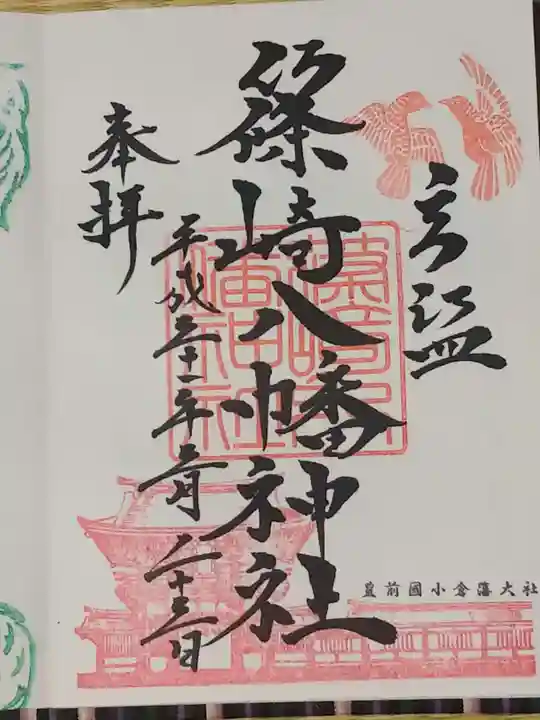 奉拝
篠崎八幡神社
平成三十一年二月二十三日
豊前國小倉藩大社
篠崎八幡神社